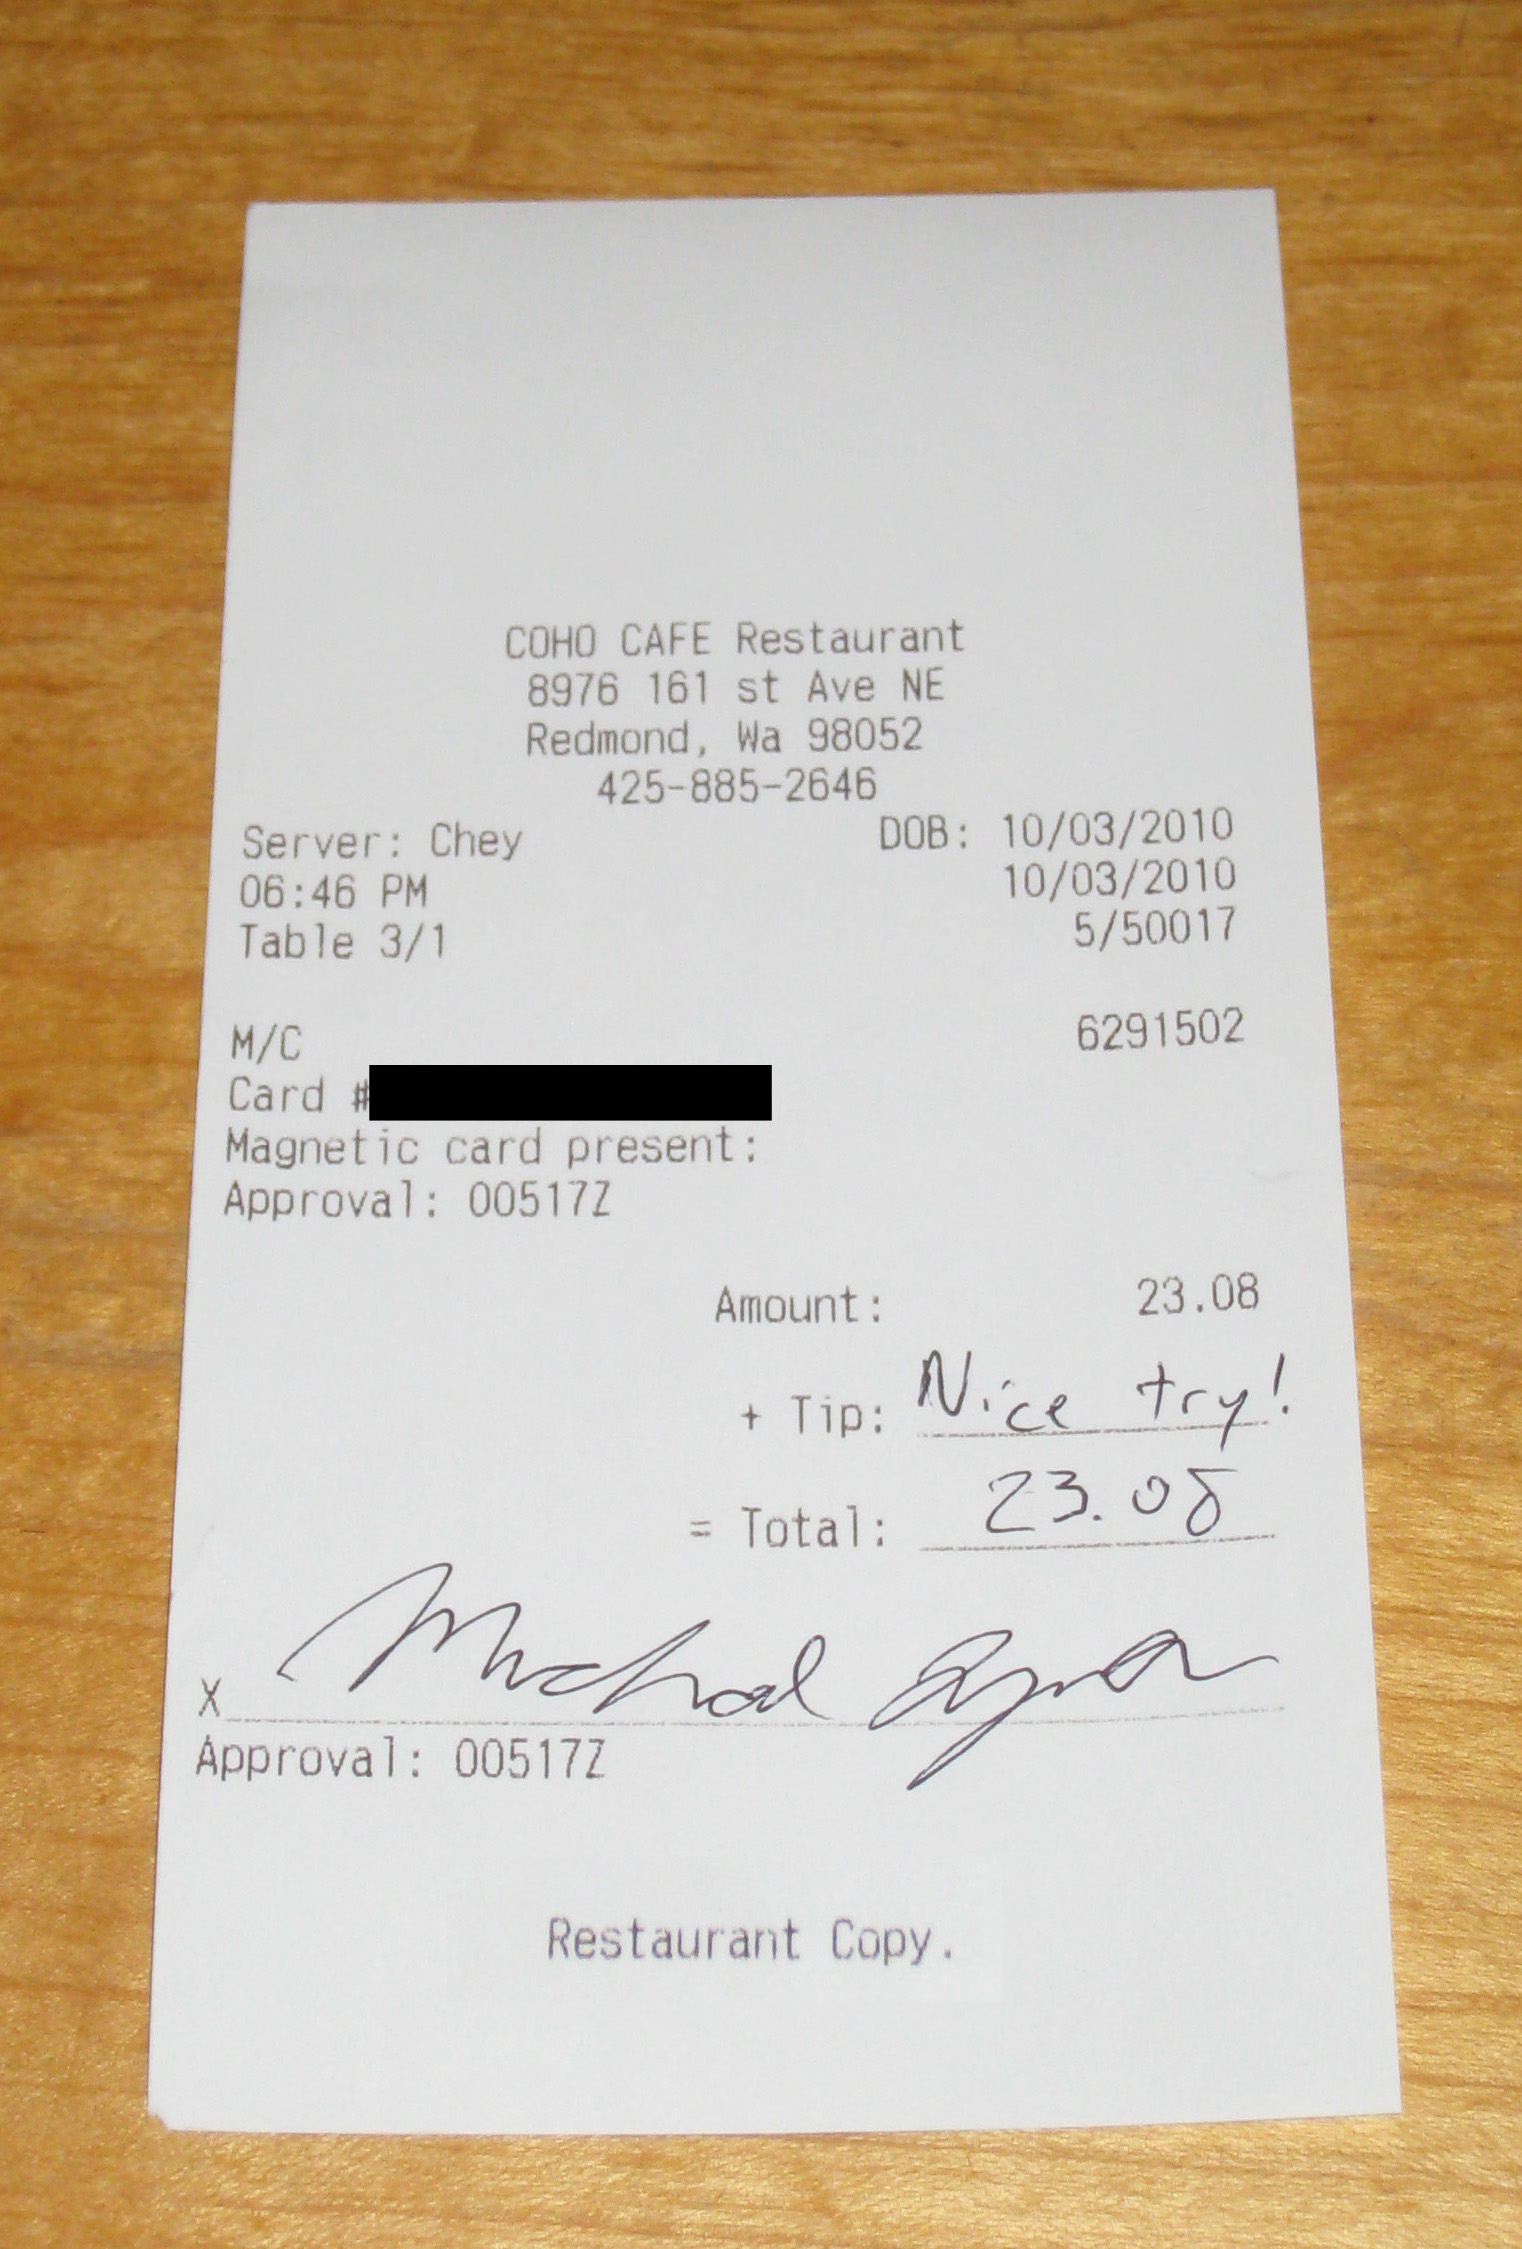 COHO CAFE Restaurant
8976 161 st Ave NE
Redmond, Wa 98052
425-885-2646
Server: Chey DOB: 10/03/2010
06:46 PM 10/03/2010
Table 3/1 5/50017
M/C 6291502
Card #
Magnetic card present:
Approval: 00517Z
Amount: 23.08
+ Tip: Nice try!
= Total: 23.08
X
Approval: 00517Z
Restaurant Copy.